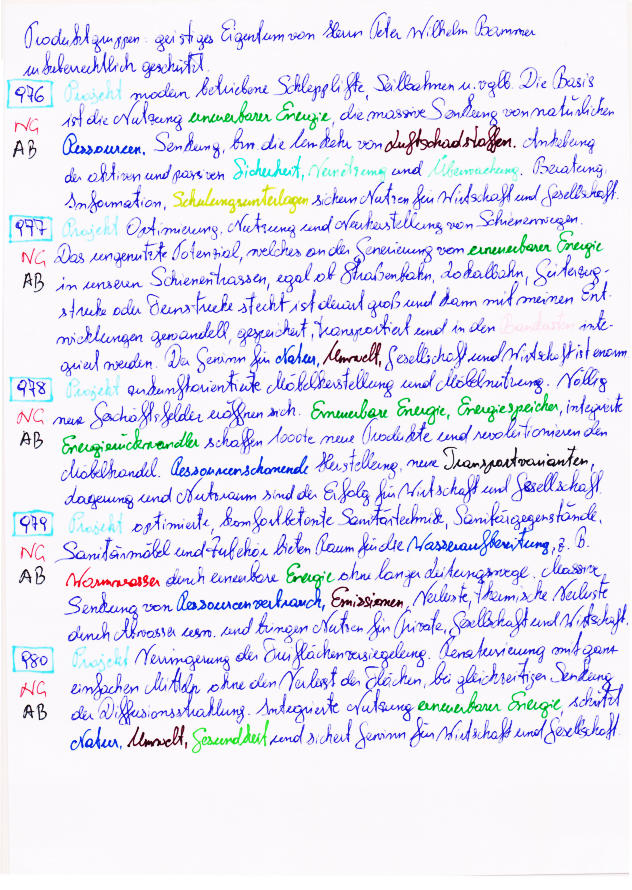 Produktgruppen: geistiges Eigentum von Herrn Peter Wilhelm Bammer
urheberrechtlich geschützt.
976 Projekt modern betriebene Schlepplifte, Seilbahnen u. vglb. Die Basis
NG ist die Nutzung erneuerbarer Energie, die massive Senkung von natürlichen
AB Ressourcen. Senkung, bzw. die Umkehr von Luftschadstoffen. Anhebung
der aktiven und passiven Sicherheit, Vernetzung und Überwachung. Beratung,
Information, Schulungsunterlagen sichern Nutzen für Wirtschaft und Gesellschaft.
977 Projekt Optimierung, Nutzung und Neuherstellung von Schienenwegen.
NG Das ungenutzte Potenzial, welches an der Generierung von erneuerbarer Energie
AB in unseren Schienentrassen, egal ob Straßenbahn, Lokalbahn, Güterzug-
strecke oder Fernstrecke steckt ist derart groß und kann mit meinen Ent-
wicklungen gewandelt, gespeichert, transportiert und in den Baukasten inte-
griert werden. Der Gewinn für Natur, Umwelt, Gesellschaft und Wirtschaft ist enorm.
978 Projekt zukunftsorientierte Möbelherstellung und Möbelnutzung. Völlig
NG neue Geschäftsfelder eröffnen sich. Erneuerbare Energie, Energiespeicher, integrierte
AB Energierückwandler schaffen 1000te neue Produkte und revolutionieren den
Möbelhandel. Ressourcenschonende Herstellung, neue Transportvarianten,
Lagerung und Nutzraum sind der Erfolg für Wirtschaft und Gesellschaft.
979 Projekt optimierte, komfortbetonte Sanitärtechnik, Sanitärgegenstände,
NG Sanitärmöbel und Zubehör bieten Raum für die Wasseraufbereitung, z. B.
AB Warmwasser durch erneuerbare Energie ohne langer Leitungswege. Massive
Senkung von Ressourcenverbrauch, Emissionen, Verluste, thermische Verluste
durch Abwasser usw. und bringen Nutzen für Private, Gesellschaft und Wirtschaft.
980 Projekt Verringerung der Freiflächenversiegelung. Renaturierung mit ganz
NG einfachen Mitteln ohne den Verlust der Flächen, bei gleichzeitiger Senkung
AB der Diffusionsstrahlung. Integrierte Nutzung erneuerbarer Energie, schützt
Natur, Umwelt, Gesundheit und sichert Gewinn für Wirtschaft und Gesellschaft.